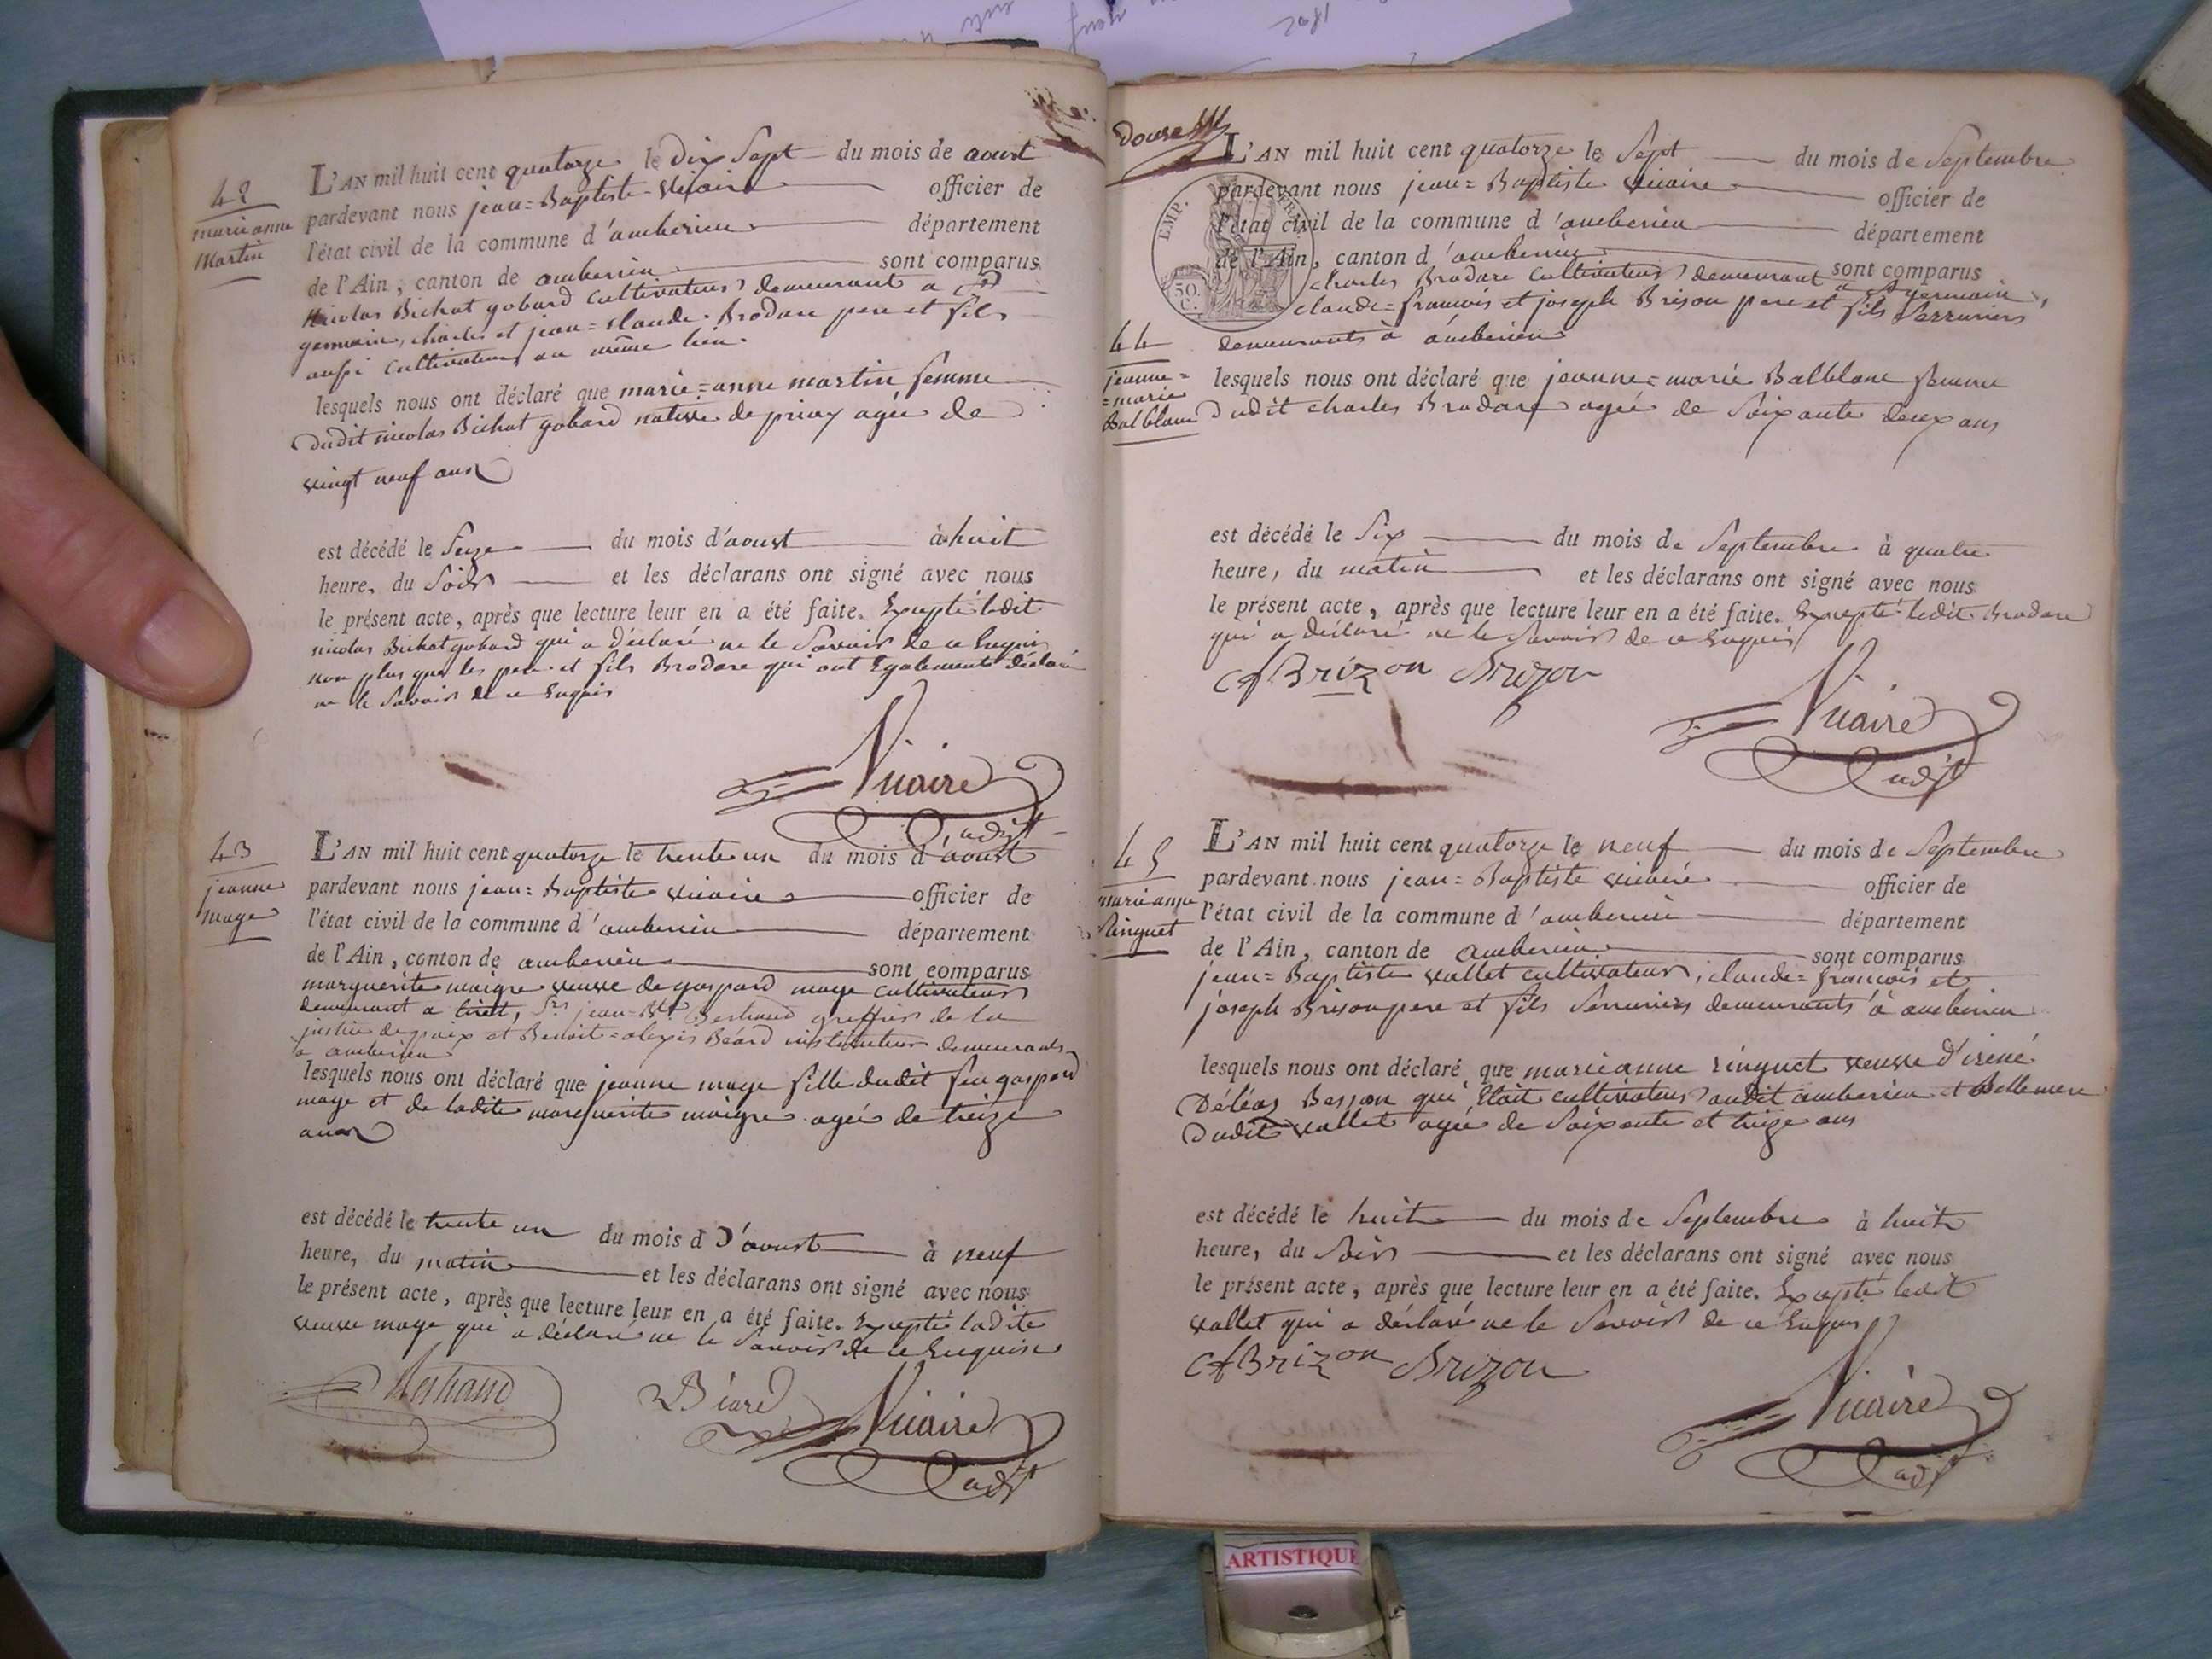 42
marieanne
Martin
L'AN mil huit cent quatorze le dix Sept du mois de aoust
pardevant nous jean=Baptiste vicaire officier de
l'état civil de la commune d'amberieu département
de l'Ain, canton de amberieu sont comparus
Nicolas Bichat gobard cultivateur demeurant a St
germain, charles et jean=claude Brodare pere et fils
aussi cultivateurs au même lieu.
lesquels nous ont déclaré que marie=anne martin femme
dudit nicolas Bichat gobard native de priay agée de
vingt neuf ans
est décédé le Seize du mois d'aoust à huit
heure, du Soir et les déclarans ont signé avec nous
le présent acte, après que lecture leur en a été faite. Excepté ledit
nicolas Bichat gobard qui a déclaré ne le Savoir de ce Enquis
non plus que les pere et fils Brodare qui ont Egalement déclaré
ne le Savoir de ce Enquis
Vicaire
adjt
43
jeanne
maye
L'AN mil huit cent quatorze le trente un du mois d'aoust
pardevant nous jean=Baptiste vicaire officier de
l'état civil de la commune d'amberieu département
de l'Ain, canton de amberieu sont comparus
marguerite maigre veuve de gaspard maye cultivateur
demeurant a tiret, Srs jean=Bte Berthand greffier de la
justice de paix et Benoit=alexis Béard instituteur demeurants
a amberieu
lesquels nous ont déclaré que jeanne maye fille dudit feu gaspard
maye et de ladite marguerite maigre agée de treize
ans
est décédé le trente un du mois d d'aoust à neuf
heure, du matin et les déclarans ont signé avec nous
le présent acte, après que lecture leur en a été faite. Excepté ladite
veuve maye qui a déclaré ne le Savoir de ce Enquise
Berthand Béard Vicaire
adjt
douze
EMP. FRAN.
50
C.
L'AN mil huit cent quatorze le Sept du mois de Septembre
pardevant nous jean=Baptiste vicaire officier de
l'état civil de la commune d'amberieu département
de l'Ain, canton d'amberieu sont comparus
charles Brodare cultivateur demeurant a St germain,
claude=francois et joseph Brison pere et fils Serruriers
demeurants à amberieu
44
jeanne=
=marie
Balblanc
lesquels nous ont déclaré que jeanne=marie Balblanc femme
dudit charles Brodare agée de Soixante deux ans
est décédé le Six du mois de Septembre à quatre
heure, du matin et les déclarans ont signé avec nous
le présent acte, après que lecture leur en a été faite. Excepté ledit Brodare
qui a déclaré ne le Savoir de ce Enquis
Cf Brizon Brizon
Vicaire
adjt
45
marieanne
Ringuet
L'AN mil huit cent quatorze le neuf du mois de Septembre
pardevant nous jean=Baptiste vicaire officier de
l'état civil de la commune d'amberieu département
de l'Ain, canton de amberieu sont comparus
jean=Baptiste vallet cultivateur, claude=francois et
joseph Brison pere et fils Serruriers demeurants à amberieu
lesquels nous ont déclaré que marieanne ringuet veuve d'irené
Déléaz Besson qui Etait cultivateur audit amberieu et Bellemere
dudit vallet agée de Soixante et treize ans
est décédé le huit du mois de Septembre à huit
heure, du Soir et les déclarans ont signé avec nous
le présent acte, après que lecture leur en a été faite. Excepté ledit
vallet qui a déclaré ne le Savoir de ce Enquis
Cf Brizon Brizon
Vicaire
adjt
ARTISTIQUE